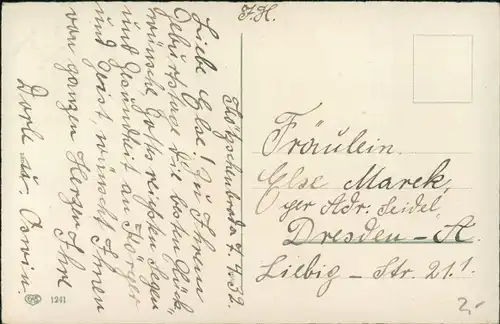 F. H.
Kötzschenbroda 7.4.32.
Liebe Else! Zu Ihrem
Geburtstage die besten Glück-
wünsche, Gottes reichsten Segen
und Gesundheit an Körper
und Geist, wünscht Ihnen
von ganzen Herzen Ihre
Dorle u. Oswin
1241
Fräulein
Else Marek,
per Adr. Seidel
Dresden-A.
Liebig-Str. 21.I.
2,-